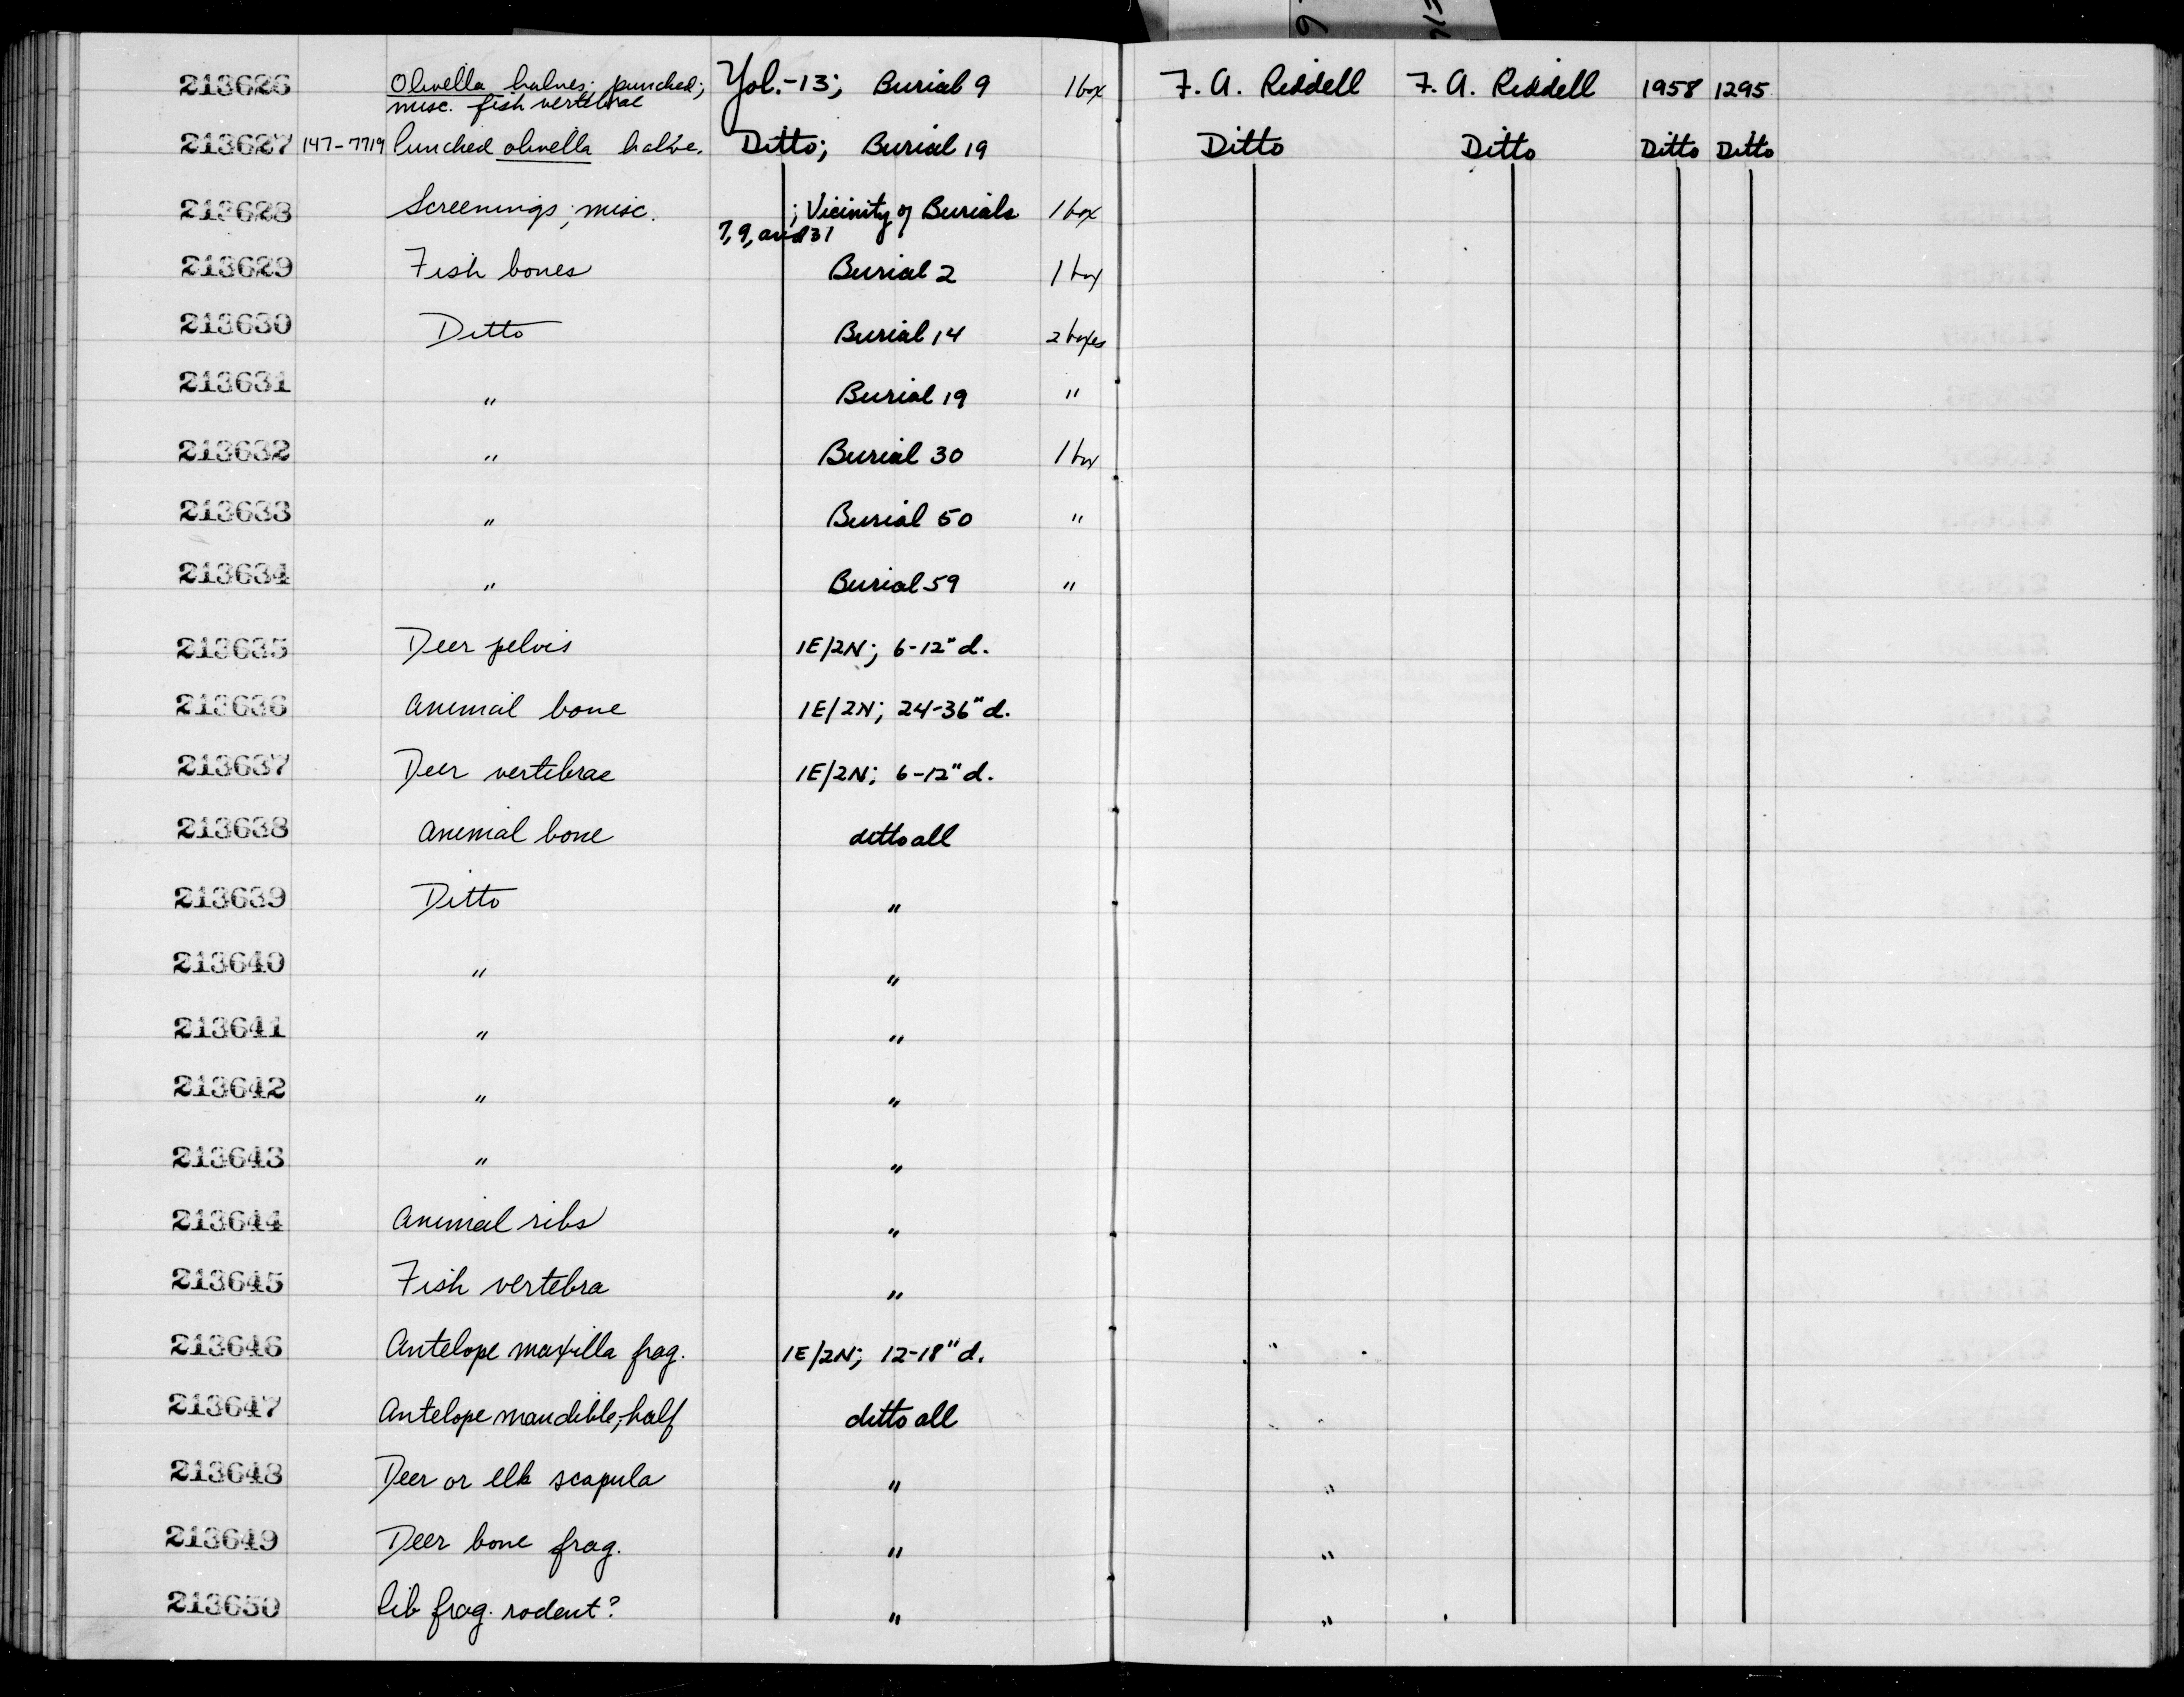 213626 Olivella halves, punched; Yol.-13; Burial 9 1 box F. A. Riddell F. A. Riddell 1958 1295
misc. fish vertebrae
213627 147-7719 Punched olivella halve. Ditto; Burial 19 Ditto Ditto Ditto Ditto
213628 Screenings; misc. ; Vicinity of Burials 1 box
7, 9, and 31
213629 Fish bones Burial 2 1 box
213630 Ditto Burial 14 2 boxes
213631 " Burial 19 "
213632 " Burial 30 1 box
213633 " Burial 50 "
213634 " Burial 59 "
213635 Deer pelvis 1E/2N; 6-12" d.
213636 Animal bone 1E/2N; 24-36" d.
213637 Deer vertebrae 1E/2N; 6-12" d.
213638 Animal bone ditto all
213639 Ditto "
213640 " "
213641 " "
213642 " "
213643 " "
213644 Animal ribs "
213645 Fish vertebra "
213646 Antelope maxilla frag. 1E/2N; 12-18" d.
213647 Antelope mandible, half ditto all
213648 Deer or elk scapula "
213649 Deer bone frag. "
213650 Rib frag. rodent? "